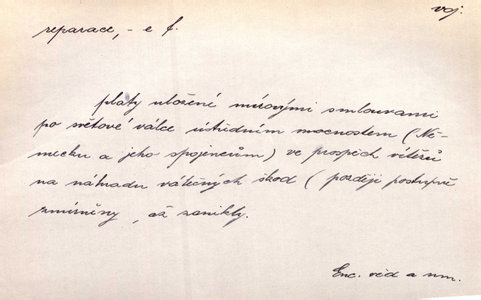 voj.
reparace, - e f.
platy uložené mírovými smlouvami
po světové válce ústředním mocnostem (Ně-
mecku a jeho spojencům) ve prospěch vítězů
na náhradu válečných škod (později postupně
zmírněny, až zanikly.
Enc. věd a um.